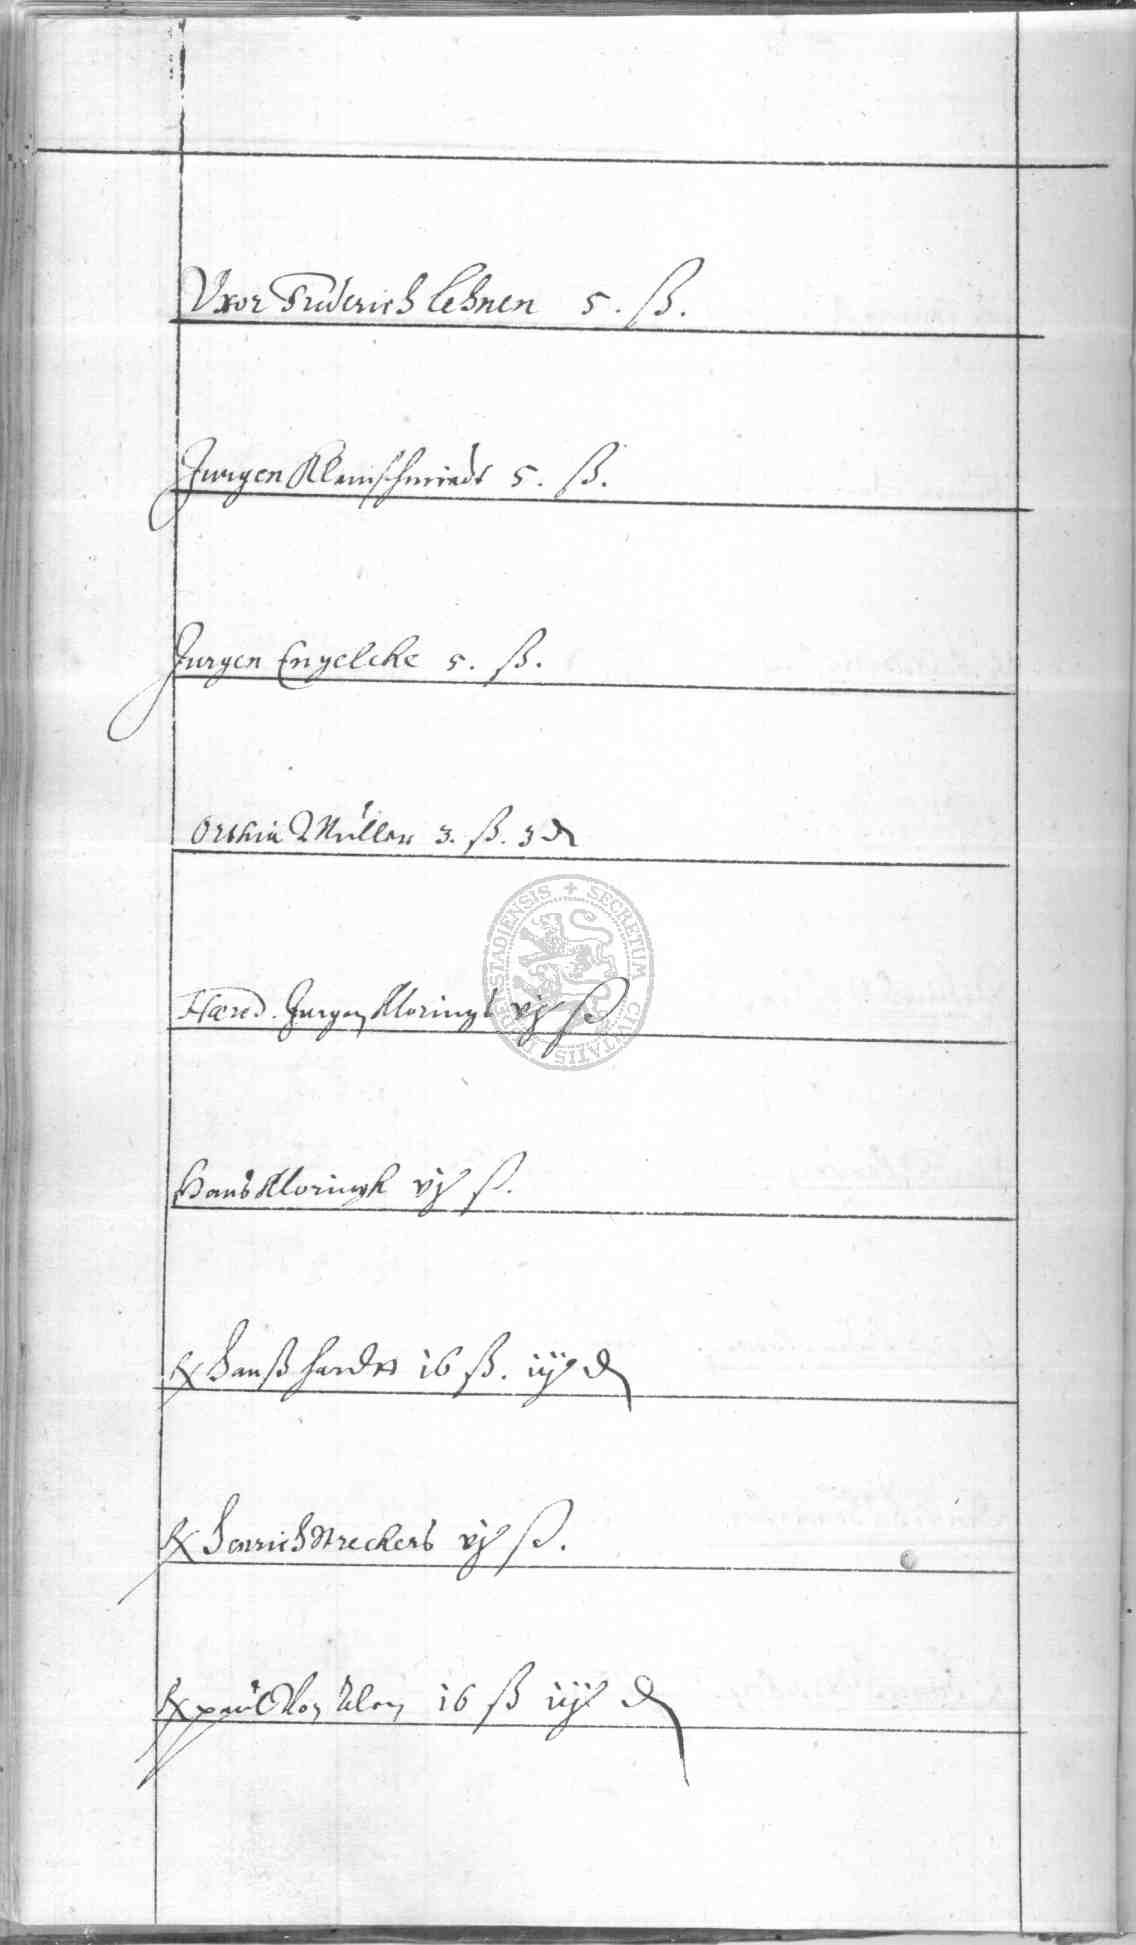 Uxor Friderich Lehnen 5. ß.
Jurgen Kleinschmiedt 5. ß.
Jurgen Engelcke 5. ß.
Müller 3. ß. 3 ₰
Hæred. Jurgen Kloringk vj ß
Hans Kloringk vj ß.
Hanß 16 ß. iij ₰
Henrich Streckers vj ß.
paul Von Ulen 16 ß iij ₰
SECRETUM CIVITATIS STADIENSIS